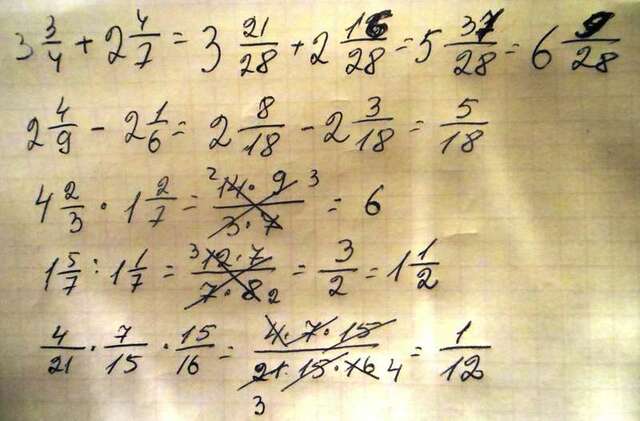 3 3/4 + 2 4/7 = 3 21/28 + 2 16/28 = 5 37/28 = 6 9/28
2 4/9 - 2 1/6 = 2 8/18 - 2 3/18 = 5/18
4 2/3 · 1 2/7 = 2 14 · 9 3 / 3 · 7 = 6
1 5/7 : 1 1/7 = 3 12 · 7 / 7 · 8 2 = 3/2 = 1 1/2
4/21 · 7/15 · 15/16 = 4 · 7 · 15 / 21 · 15 · 16 4 = 1/12
3